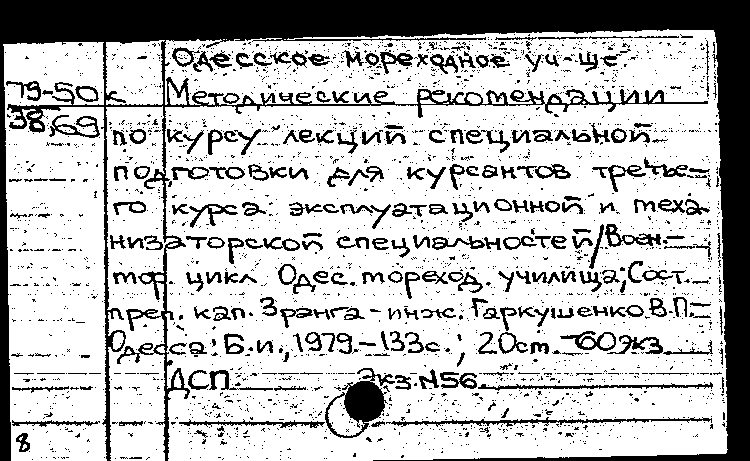 Одесское мореходное уч-ще
79-50к Методические рекомендации
38,69 по курсу лекций специальной
подготовки для курсантов третье-
го курса эксплуатационной и меха-
низаторской специальностей/Воен.-
мор. цикл Одес. мореход. училища; Сост.
преп. кап. 3 ранга-инж. Гаркушенко В.П.-
Одесса: Б.и., 1979.-133с.; 20см. -60экз.
ДСП. Экз.N56.
8